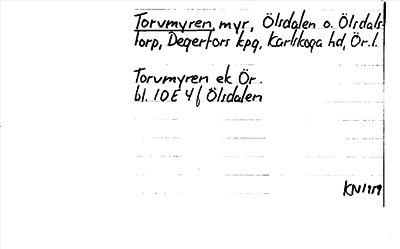 Torvmyren, myr, Ölsdalen o. Ölsdals-
torp, Degerfors kpg, Karlskoga hd, Ör. l.
Torvmyren ek Ör.
bl. 10E 4f Ölsdalen
KN1959